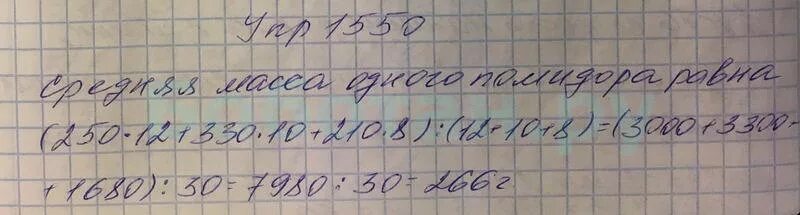 Упр 1550
средняя масса одного помидора равна
(250·12+330·10+210·8):(12+10+8)=(3000+3300+
+1680):30=7980:30=266г